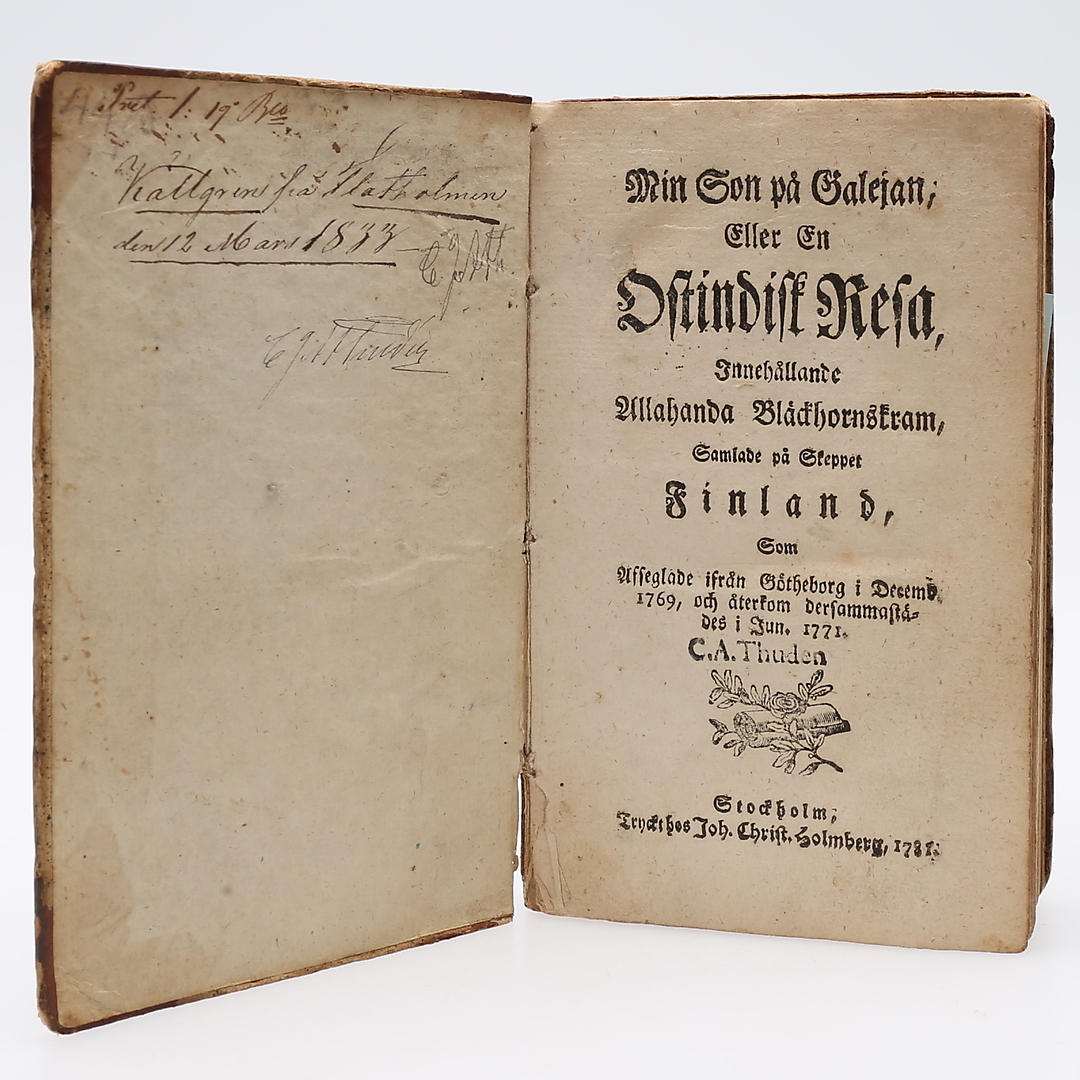 1: 19 Bco
Källgren från Flatholmen
den 12 Mars 1833
Min Son på Galejan;
Eller En
Ostindisk Resa,
Innehållande
Allahanda Bläckhornskram,
Samlade på Skeppet
Finland,
Som
Afseglade ifrån Götheborg i Decemb.
1769, och återkom dersammastä-
des i Jun. 1771.
C.A. Thuden
Stockholm,
Tryckt hos Joh. Christ. Holmberg, 1781.